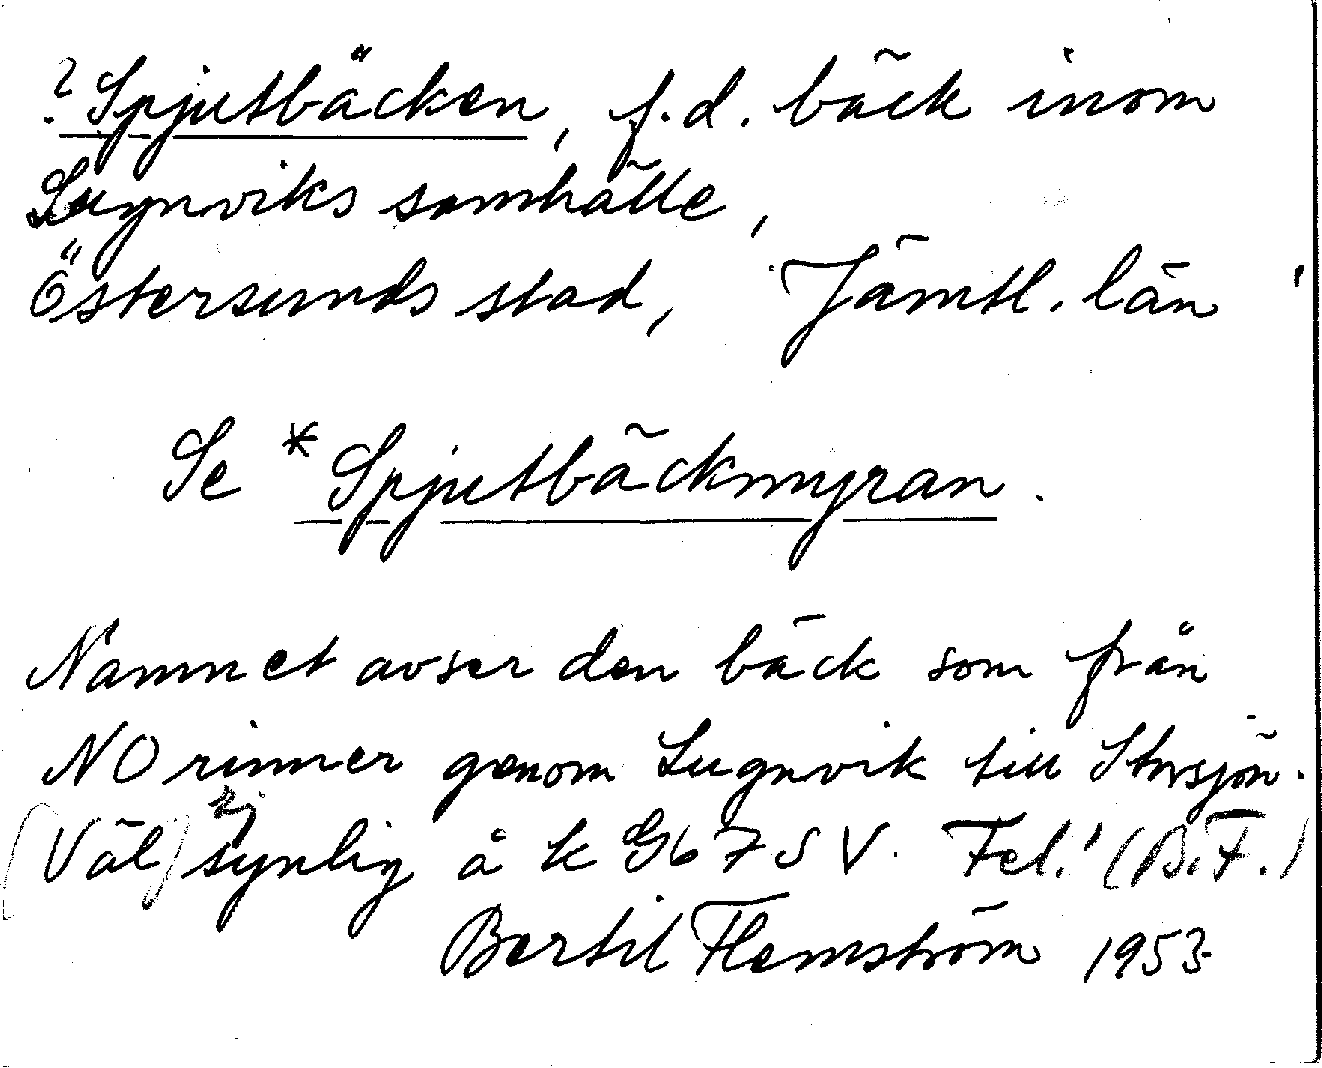 ? Spjutbäcken, f.d. bäck inom
Lugnviks samhälle,
Östersunds stad, Jämtl. län
Se *Spjutbäckmyran.
Namnet avser den bäck som från
NO rinner genom Lugnvik till Storsjön.
(Väl) ej synlig å k G67SV. Fel! (B.F.)
Bertil Flemström 1953